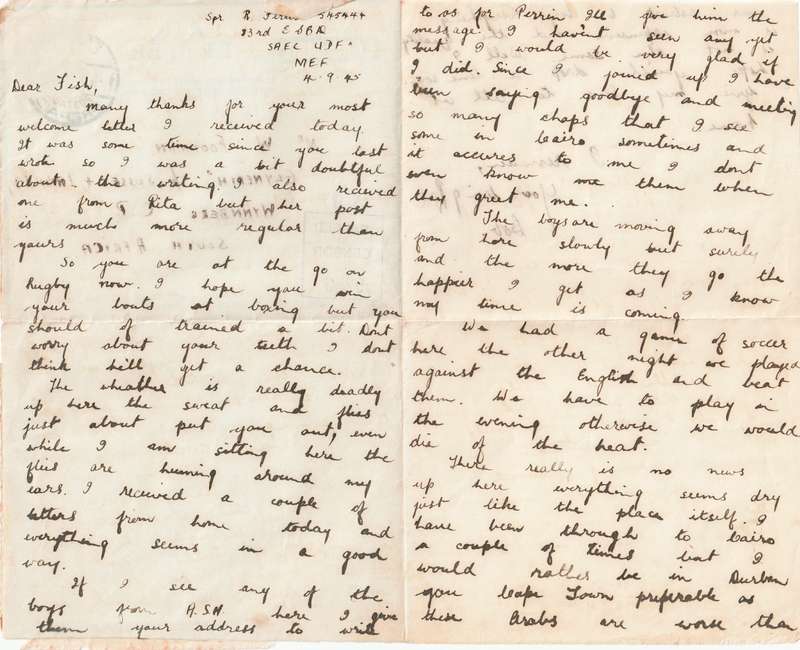 Spr R. 545444
83rd
SAEC UDF.
MEF
4.9.45
Dear Fish,
Many thanks for your most
welcome letter I received today
It was some time since you last
wrote so I was a bit doubtful
about the writing. I also received
one from Rita but her post
is much more regular than
yours
So you are at the go on
Rugby now. I hope you win
your bouts at boxing but you
should of trained a bit. Dont
worry about your teeth I dont
think he'll get a chance.
The wheather is really deadly
up here the sweat and flies
just about put you out, even
while I am sitting here the
flies are huming around my
ears. I received a couple of
letters from home today and
everything seems in a good
way.
If I see any of the
boys from H.S.H. here I give
them your address to write
to as for Perrin Ill give him the
message. I havent seen any yet
but I would be very glad if
I did. Since I joined up I have
been saying goodbye and meeting
so many chaps that I see
some in Cairo sometimes and
it accures to me I dont
even know them when
they greet me.
The boys are moving away
from here slowly but surely
and the more they go the
happier I get as I know
my time is coming.
We had a game of soccer
here the other night we played
against the English and beat
them. We have to play in
the evening otherwise we would
die of the heat.
There really is no news
up here everything seems dry
just like the place itself. I
have been through to Cairo
a couple of times but I
would rather be in Durban
you Cape Town preferable as
these Arabs are worse than